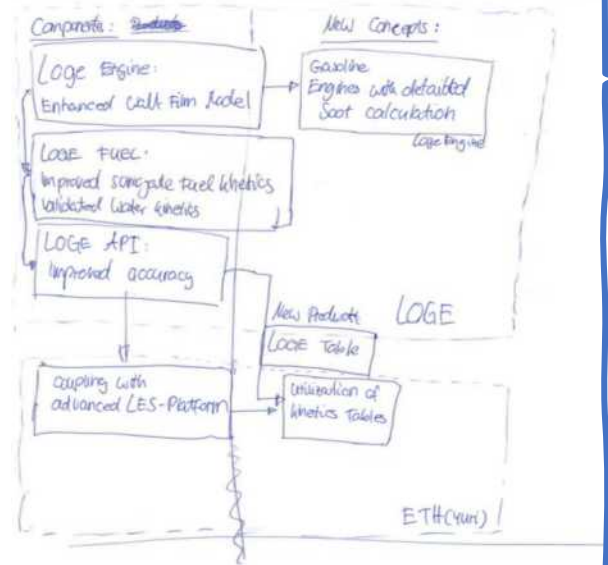 Components:
New Concepts:
Loge Engine:
Enhanced Wall Film Model
Gasoline
Engines with detailed
Soot calculation
Loge Engine
LOGE FUEL:
Improved surrogate fuel kinetics
Validated Water kinetics
LOGE API:
Improved accuracy
New Product
LOGE
LOGE Table
Coupling with
advanced LES-Platform
Utilization of
kinetics Tables
ETH (Yuri)